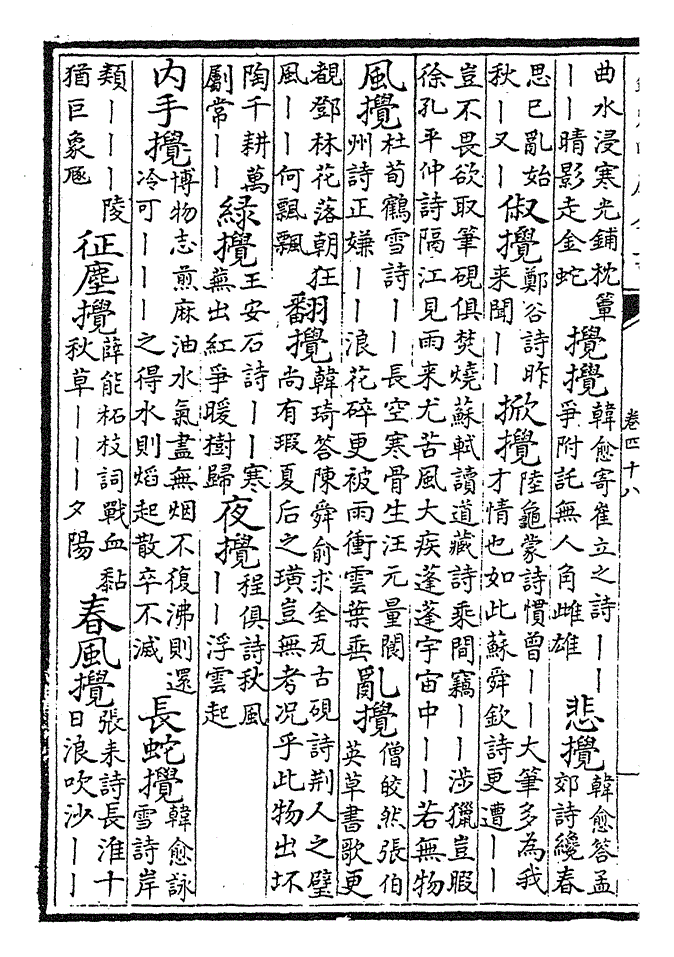 曲水浸寒光鋪枕簟｜｜晴影走金蛇 攪攪 韓愈寄崔立之詩｜｜爭附託無人角雌雄 悲攪 韓愈答孟郊詩纔春
思已亂始秋｜又｜ 俶攪 鄭谷詩昨来聞｜｜ 掀攪 陸龜蒙詩慣曾｜｜大筆多為我才情也如此蘇舜欽詩更遭｜｜
豈不畏欲取筆硯俱焚燒蘇軾讀道藏詩乘間竊｜｜涉獵豈暇徐孔平仲詩隔江見雨来尤苦風大疾蓬蓬宇宙中｜｜若無物
風攪 杜荀鶴雪詩｜｜長空寒骨生汪元量閬州詩正嫌｜｜浪花碎更被雨衝雲葉垂 亂攪 僧皎然張伯英草書歌更
覩鄧林花落朝狂風｜｜何飄飄 翻攪 韓琦答陳舜俞求全瓦古硯詩荆人之璧尚有瑕夏后之璜豈無考况乎此物出坏
陶千耕萬劚常｜｜ 緑攪 王安石詩｜｜寒蕪出紅爭暖樹歸 夜攪 程俱詩秋風｜｜浮雲起
内手攪 博物志煎麻油水氣盡無烟不復沸則還冷可｜｜｜之得水則焰起散卒不滅 長蛇攪 韓愈詠雪詩岸
類｜｜｜陵猶巨象豗 征塵攪 薛能柘枝詞戰血黏秋草｜｜｜夕陽 春風攪 張耒詩長淮十日浪吹沙｜｜
卷四十八